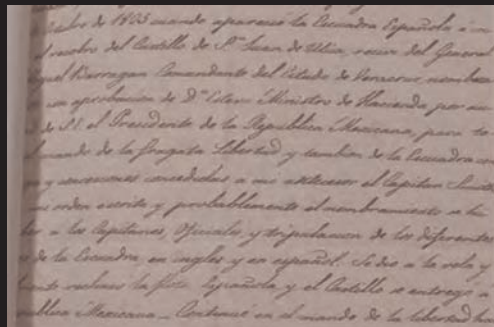 de 1825 cuando aparecio la Escuadra Española a
el recobro del Castillo de Sn Juan de Ulúa, recivi del General
Miguel Barragan Comandante del Estado de Veracruz, nombra
con aprobacion de Dn Esteva Ministro de Hacienda, por
de S.E. el Presidente de la Republica Mexicana, para to
mando de la fragata Libertad, y tambien de la Escuadra con
y concedidas a mi antecesor el Capitan Smith
orden escrita y probablemente el nombramiento se
a los Capitanes, Oficiales, y tripulacion de los diferentes
de la Escuadra, en ingles y en español. Se dio a la vela y
rechazo la flota Española y el Castillo se entrego a
publica Mexicana_ Continué en el mando de la libertad